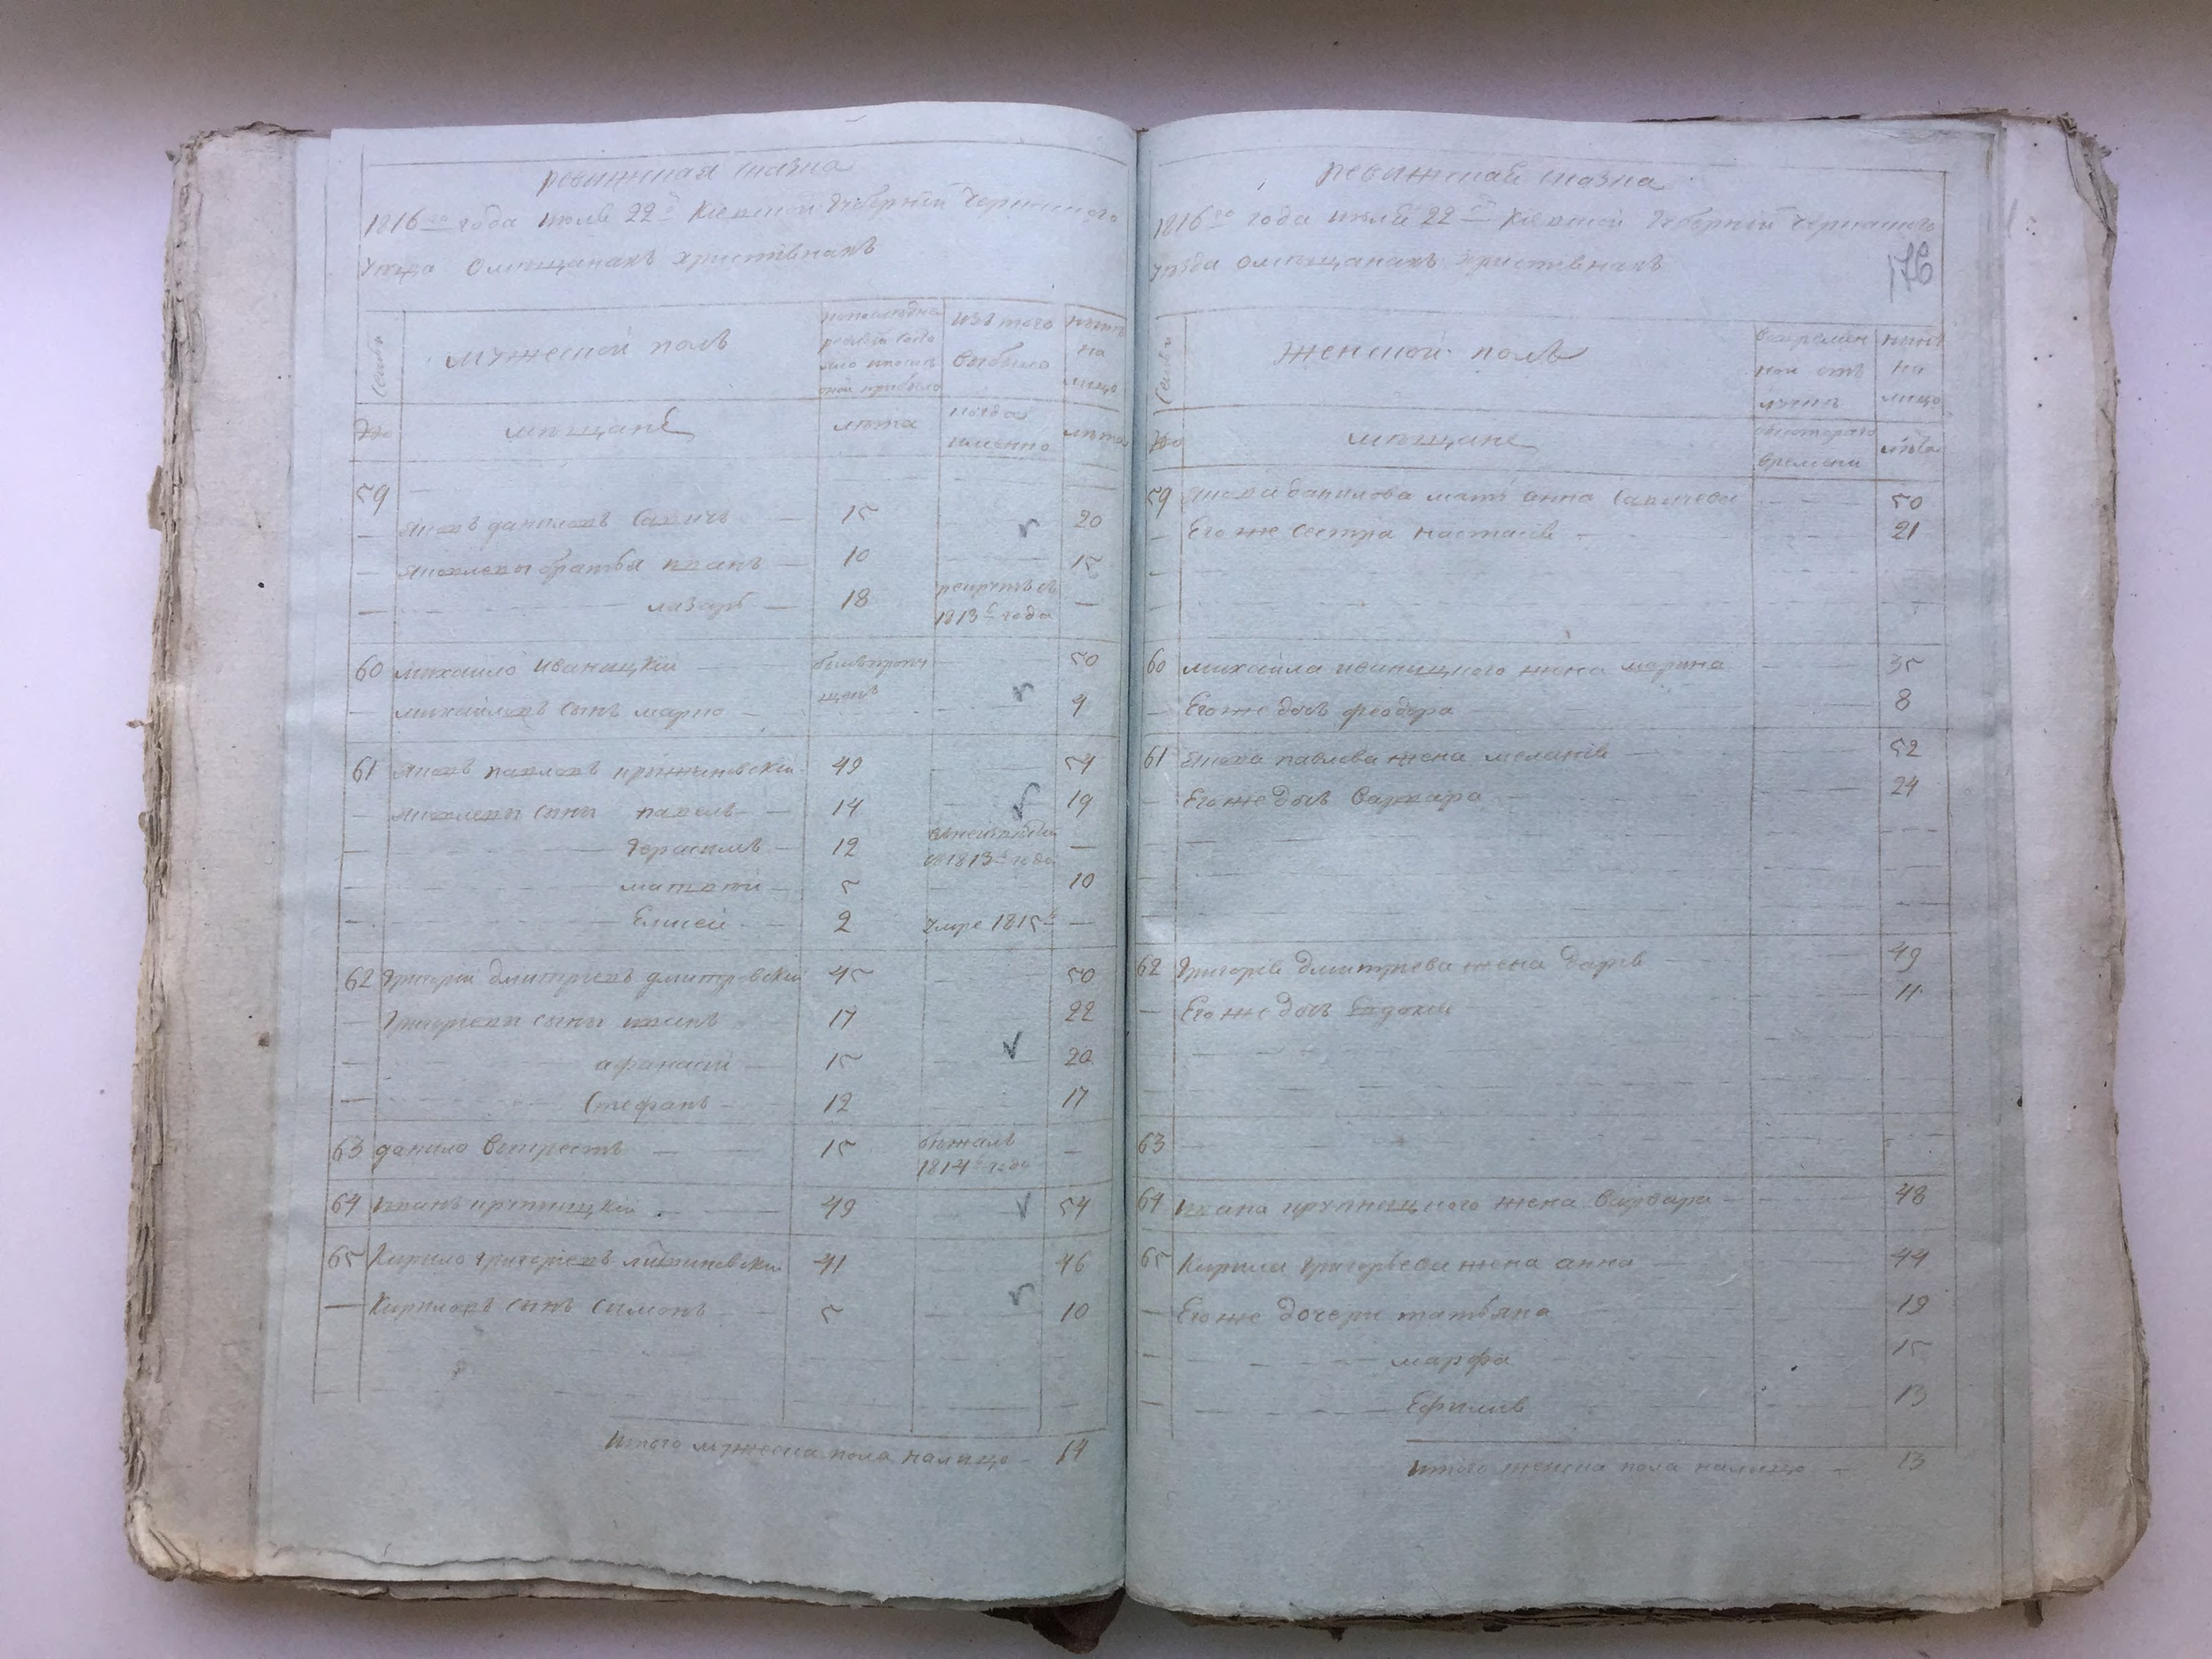 ревижская сказка
1816го года июля 22о Кіевской Губерніи Черкаского
уезда О мещанахъ христіянахъ
семьи
мужеской полъ
по последней
ревизіи состо
яло и после
оной прибыло
изъ того
выбыло
ныне
на
лицо
№
мещане
лета
когда
именно
лета
59
Яковъ даниловъ савичъ 15 20
Яковлевы братья иванъ 10 15
лазарь 18 рекрутъ съ
1813го года
60 михаило иваницкій былъ пропущенъ 50
михайловъ сынъ марко 9
61 Яковъ павловъ 49 54
Яковлевы сыны павелъ 14 19
герасимъ 12
1813го года
матвей 5 10
Елисей 2 умре 1815го
62 Григорій дмитріевъ дмитровскій 45 50
Григорьевы сыны иванъ 17 22
афанасій 15 20
Стефанъ 12 17
63 данило 15 бежалъ
1814го года
64 иванъ крупницкій 49 54
65 Кирило григоріевъ литвиновскій 41 46
Кириловъ сынъ симонъ 5 10
Итого мужеска пола налицо 14
ревижская сказка
1816го года июля 22го Кіевской Губерніи Черкаского
уезда О мещанахъ христіянахъ
176
семьи
женской полъ
во времен
ной от
лучке
ныне
на
лицо
№
мещане
с котораго
времени
лета
59 Якова данилова мать анна савичева 50
Его же сестра настасія 21
60 михаила иваницкого жена марина 35
Его же дочь феодора 8
61 Якова павлова жена меланія 52
Его же дочь варвара 24
62 Григорія дмитриева жена дарія 49
Его же дочь Евдокія 11
63
64 ивана крупницкого жена варвара 48
65 Кирила григорьева жена анна 44
Его же дочери татьяна 19
марфа 15
Ефимія 13
итого женска пола налицо 13